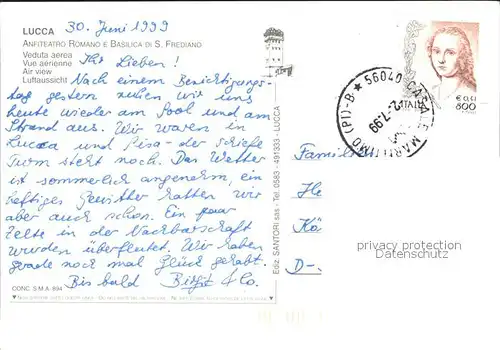 LUCCA
30. Juni 1999
ANFITEATRO ROMANO E BASILICA DI S. FREDIANO
Veduta aerea
Vue aérienne
Air view
Luftaussicht
Ihr Lieben!
Nach einem Besichtigungs-
tag gestern ruhen wir uns
heute wieder am Pool und am
Strand aus. Wir waren in
Lucca und Pisa - der schiefe
Turm steht noch. Das Wetter
ist sommerlich angenehm, ein
heftiges Gewitter hatten wir
aber auch schon. Ein paar
Zelte in der Nachbarschaft
wurden überflutet. Wir haben
gerade noch mal Glück gehabt.
Bis bald Birgit & Co.
CONC. S.M.A. 694
Ediz. SANTORI sas - Tel. 0583 - 491333 - LUCCA
56040 CASALE MARITTIMO (PI) - B
2.-7.99
ITALIA
€ 0,41
800
Familie
He
Kö
D-
privacy protection
Datenschutz